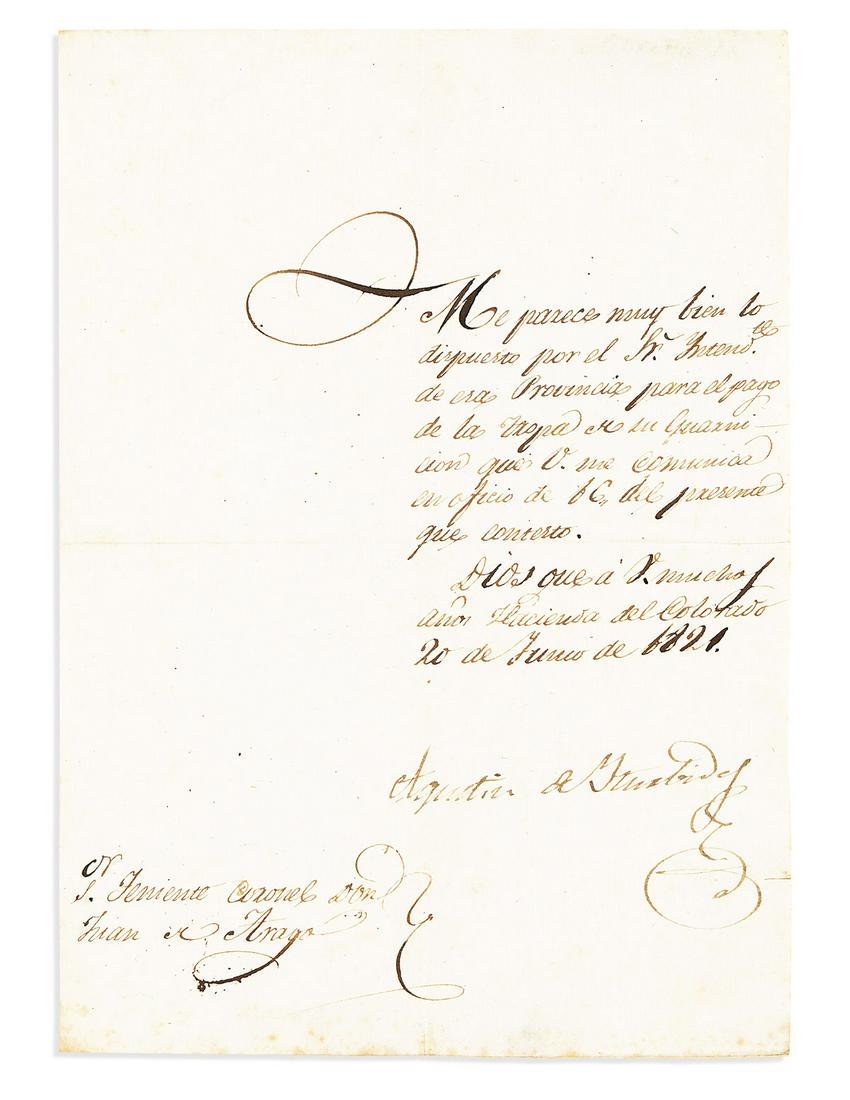 Me parece muy bien lo
dispuesto por el Sr. Intend.te
de esa Provincia para el pago
de la Tropa de su Guarni-
cion que V. me comunica
en oficio de 16,, del presente
que contesto.
Dios gue. a V. muchos
años Hacienda del Colorado
20 de Junio de 1821.
Agustin de Iturbide
Sor. Teniente Coronel Don
Juan de Arago